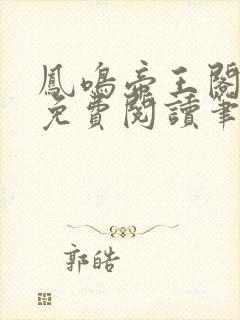 鳳鳴帝王閣
免費閱讀筆
郭皓